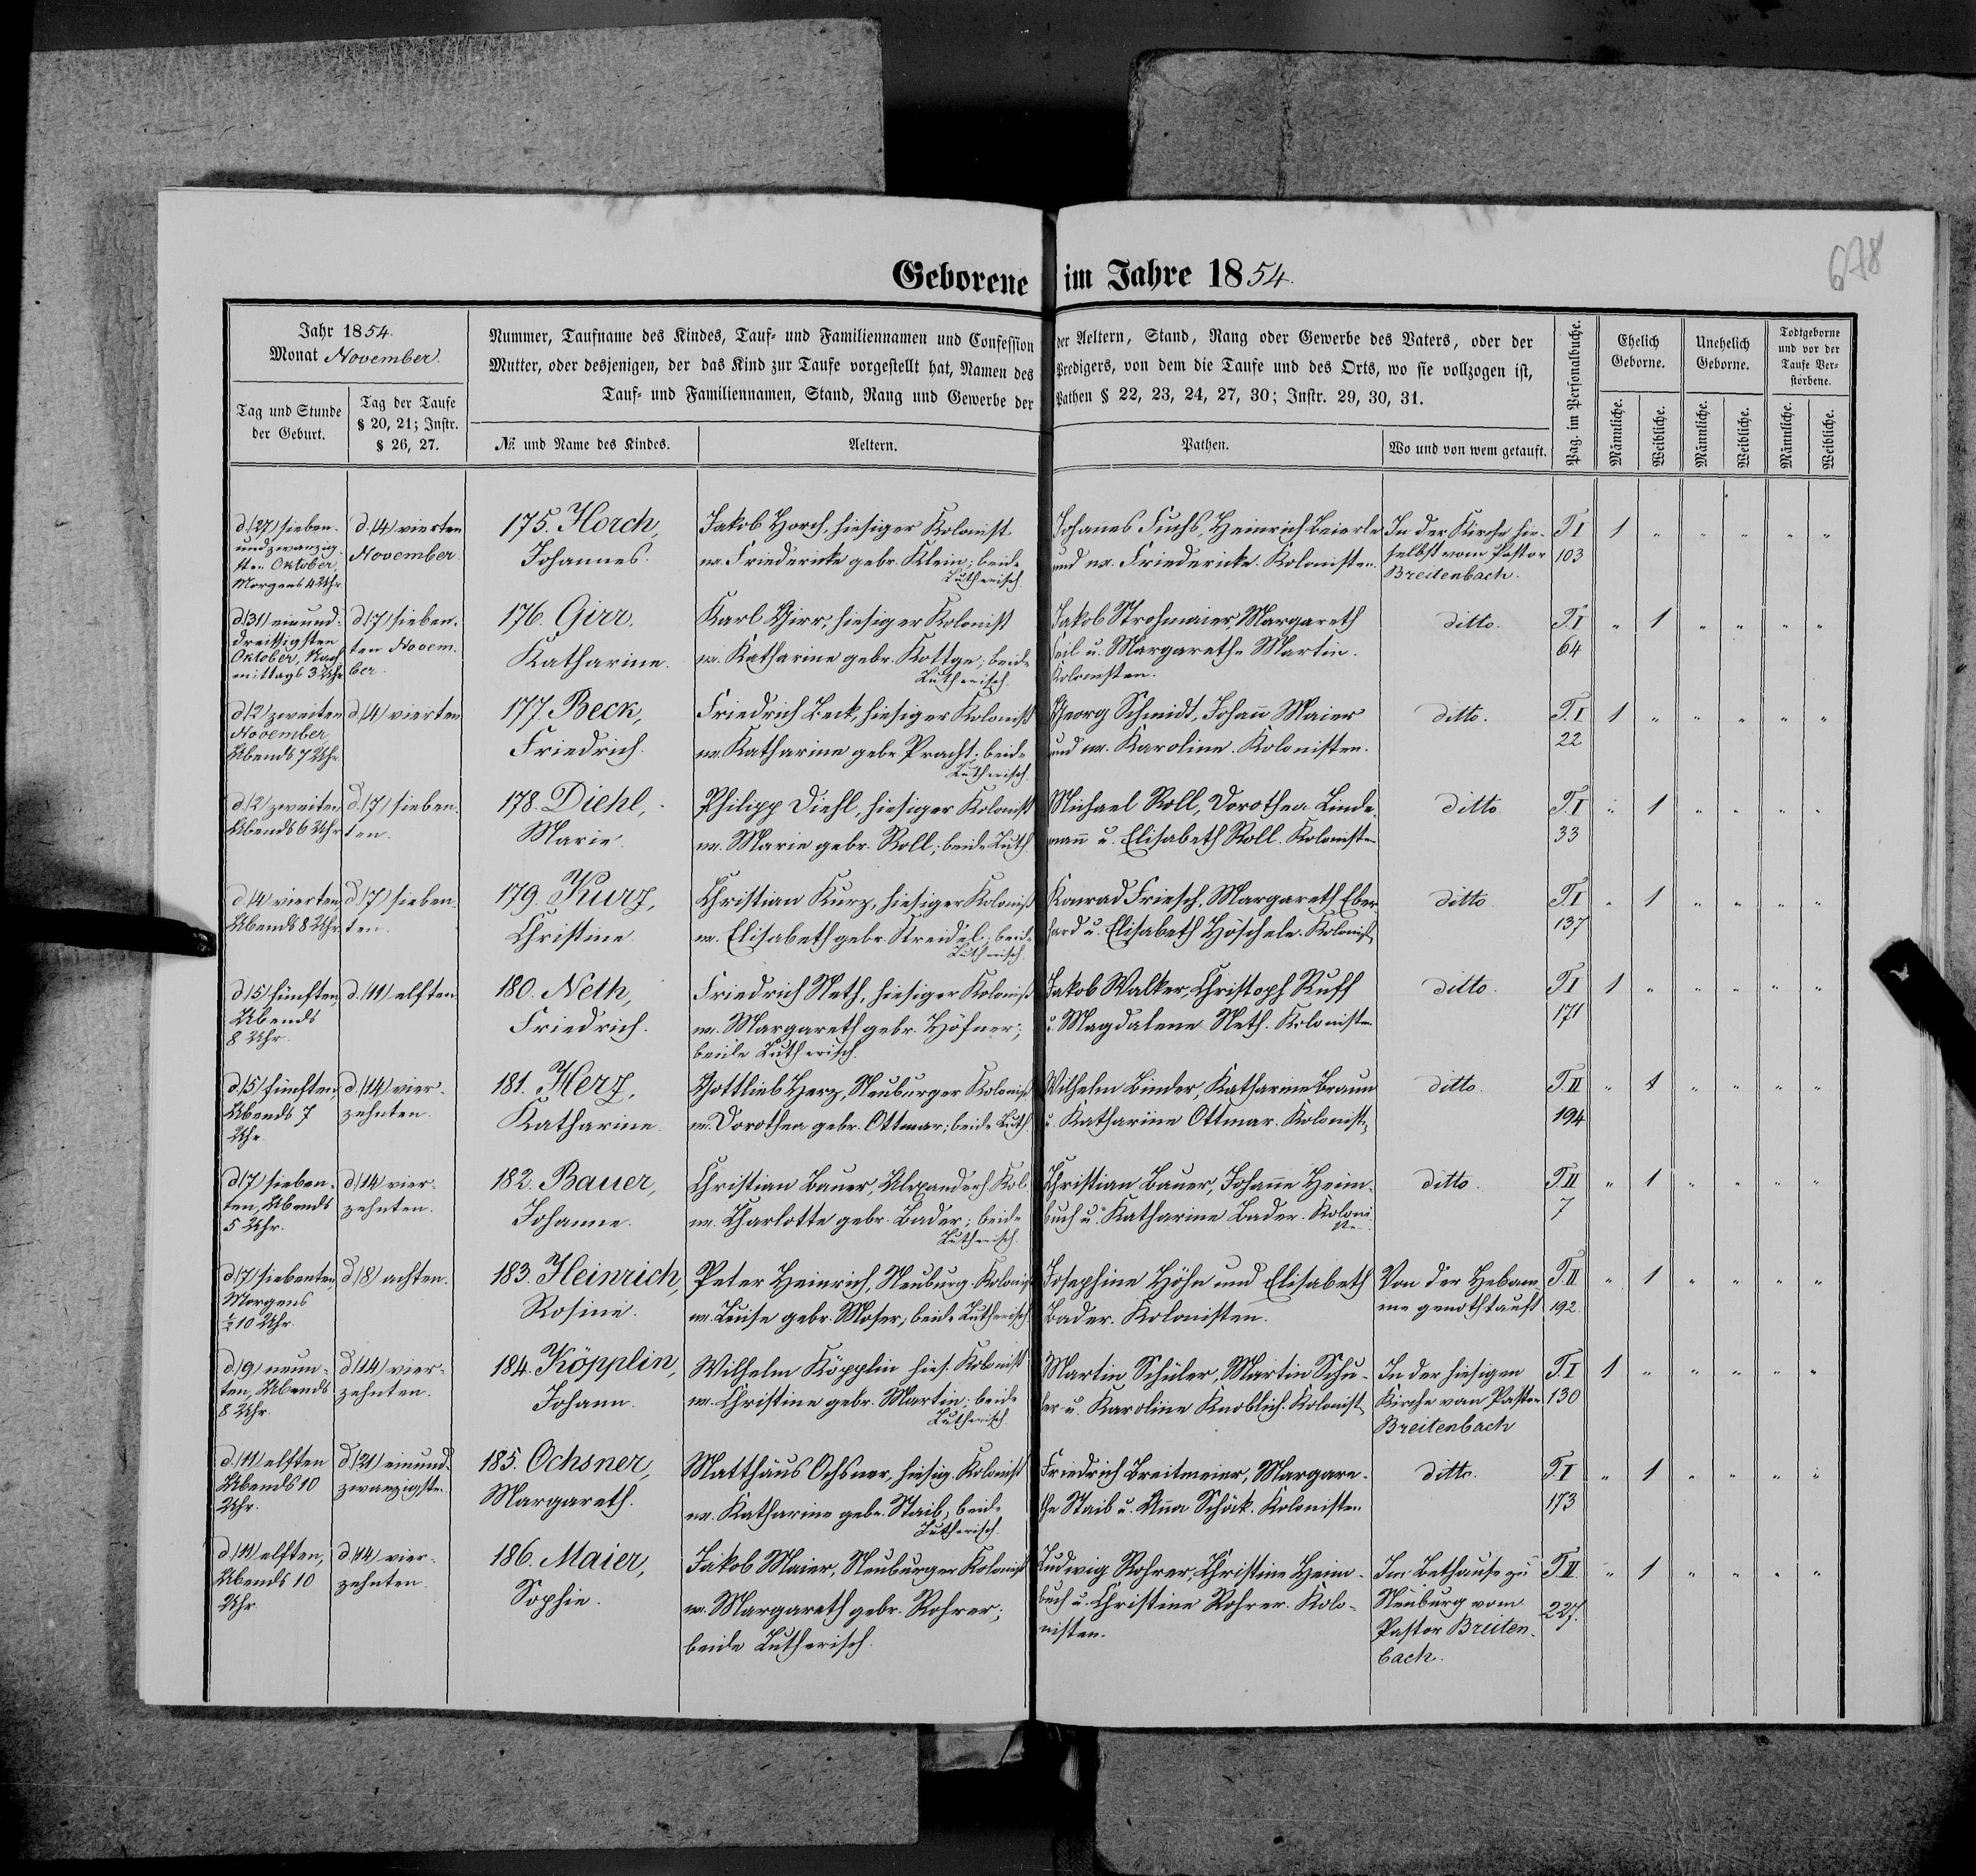 678
Geborene im Jahre 1854.
Jahr 1854.
Monat November.
Tag und Stunde der Geburt.
Tag der Taufe § 20, 21; Instr. § 26, 27.
Nummer, Taufname des Kindes, Tauf- und Familiennamen und Confession der Aeltern, Stand, Rang oder Gewerbe des Vaters, oder der
Mutter, oder desjenigen, der das Kind zur Taufe vorgestellt hat, Namen des Predigers, von dem die Taufe und des Orts, wo sie vollzogen ist,
Tauf- und Familiennamen, Stand, Rang und Gewerbe der Pathen § 22, 23, 24, 27, 30; Instr. 29, 30, 31.
№ und Name des Kindes.
Aeltern.
Pathen.
Wo und von wem getauft.
Pag. im Personalbuche.
Ehelich Geborne.
Unehelich Geborne.
Todtgeborne und vor der Taufe Verstorbene.
Männliche. Weibliche. Männliche. Weibliche. Männliche. Weibliche.
d. (27) sieben-
undzwanzig-
sten Oktober,
Morgens 4 Uhr
d. (4) vierten
November.
175. Horch,
Johannes.
Jakob Horch, hiesiger Kolonist
ux. Friedericke gebr. Klein; beide
Lutherisch.
Johannes Fuchs, Heinrich Beierle
und ux. Friedericke. Kolonisten.
In der Kirche hie-
selbst vom Pastor
Breitenbach.
T. I
103
1 " " " " "
d. (31) einund-
dreissigsten
Oktober, Nach-
mittags 3 Uhr
d. (7) sieben-
ten Novem-
ber.
176. Girr.
Katharine.
Karl Girr, hiesiger Kolonist
ux. Katharine gebr. Kottge; beide
Lutherisch.
Jakob Strohmaier Margareth
Keil u. Margarethe Martin.
Kolonisten.
ditto.
T. I
64
" 1 " " " "
d. (2) zweiten
November,
Abends 7 Uhr
d. (4) vierten
177. Beck,
Friedrich.
Friedrich Beck, hiesiger Kolonist
ux. Katharine gebr. Pracht; beide
Lutherisch.
Georg Schmidt, Johann Maier
und ux. Karoline. Kolonisten.
ditto.
T. I
22
1 " " " " "
d. (2) zweiten
Abends 6 Uhr
d. (7) sieben-
ten.
178. Diehl,
Marie.
Philipp Diehl, hiesiger Kolonist
ux. Marie gebr. Roll; beide Luth.
Michael Roll, Dorothea Linde-
mann u. Elisabeth Roll. Kolonisten
ditto
T. I
33
" 1 " " " "
d. (4) vierten
Abends 8 Uhr
d. (7) sieben-
ten.
179. Kurz,
Christine.
Christian Kurz, hiesiger Kolonist
ux. Elisabeth gebr. Kreidel; beide
Lutherisch.
Konrad Friesch, Margareth Eber-
hard u. Elisabeth Höschele. Kolonist.
ditto
T. I
137
" 1 " " " "
d. (5) fünften
Abends
8 Uhr.
d. (11) elften
180. Neth,
Friedrich.
Friedrich Neth, hiesiger Kolonist
ux. Margareth gebr. Höfner;
beide Lutherisch.
Jakob Walker, Christoph Ruff
u. Magdalene Neth. Kolonisten
ditto.
T. I
171
1 " " " " "
d. (5) fünften,
Abends 7
Uhr.
d. (14) vier-
zehnten.
181. Herz,
Katharine.
Gottlieb Herz, Neuburger Kolonist
ux. Dorothea gebr. Ottmar; beide Luth.
Wilhelm Binder, Katharine Braun
u. Katharine Ottmar. Kolonist.
ditto.
T. II
194
" 1 " " " "
d. (7) sieben-
ten, Abends
5 Uhr.
d. (14) vier-
zehnten.
182. Bauer,
Johanne.
Christian Bauer, Alexanderh. Kol.
ux. Charlotte gebr. Bader; beide
Lutherisch.
Christian Bauer, Johanne Heim-
buch u. Katharine Bader. Koloni-
sten
ditto.
T. II
7
" 1 " " " "
d. (7) siebenten,
Morgens
½10 Uhr.
d. (8) achten.
183. Heinrich,
Rosine.
Peter Heinrich, Neuburg. Kolonist
ux. Luise gebr. Moser; beide Lutherisch.
Josephine Höhn und Elisabeth
Bader. Kolonisten.
Von der Hebam-
me genothtauft
T. II
192.
" 1 " " " "
d. (9) neun-
ten, Abends
8 Uhr.
d. (14) vier-
zehnten.
184. Köpplin,
Johann.
Wilhelm Köpplin hies. Kolonist
ux. Christine gebr. Martin; beide
Lutherisch.
Martin Schüler, Martin Schü-
ler u. Karoline Knoblich. Kolonist.
In der hiesigen
Kirche vom Pastor
Breitenbach
T. I
130
1 " " " " "
d. (11) elften
Abends 10
Uhr.
d. (21) einund-
zwanzigsten.
185. Ochsner,
Margareth.
Matthäus Ochsner, hiesig. Kolonist
ux. Katharine gebr. Staib; beide
Lutherisch.
Friedrich Breitmeier, Margare-
the Staib u. Anna Schöck. Kolonisten
ditto.
T. I
173
" 1 " " " "
d. (11) elften,
Abends 10
Uhr
d. (14) vier-
zehnten.
186. Maier,
Sophie.
Jakob Maier, Neuburger Kolonist
ux. Margareth gebr. Rohrer;
beide Lutherisch.
Ludwig Rohrer, Christine Heim-
buch u. Christine Rohrer. Kolo-
nisten.
Im Bethause zu
Neuburg vom
Pastor Breiten-
bach.
T. II.
227.
" 1 " " " "